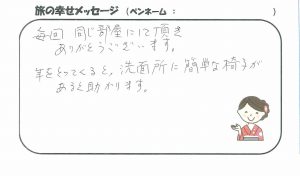 旅の幸せメッセージ (ペンネーム： )
毎回 同じ部屋にして頂き
ありがとうございます。
年をとってくると、洗面所に簡単な椅子が
あると助かります。